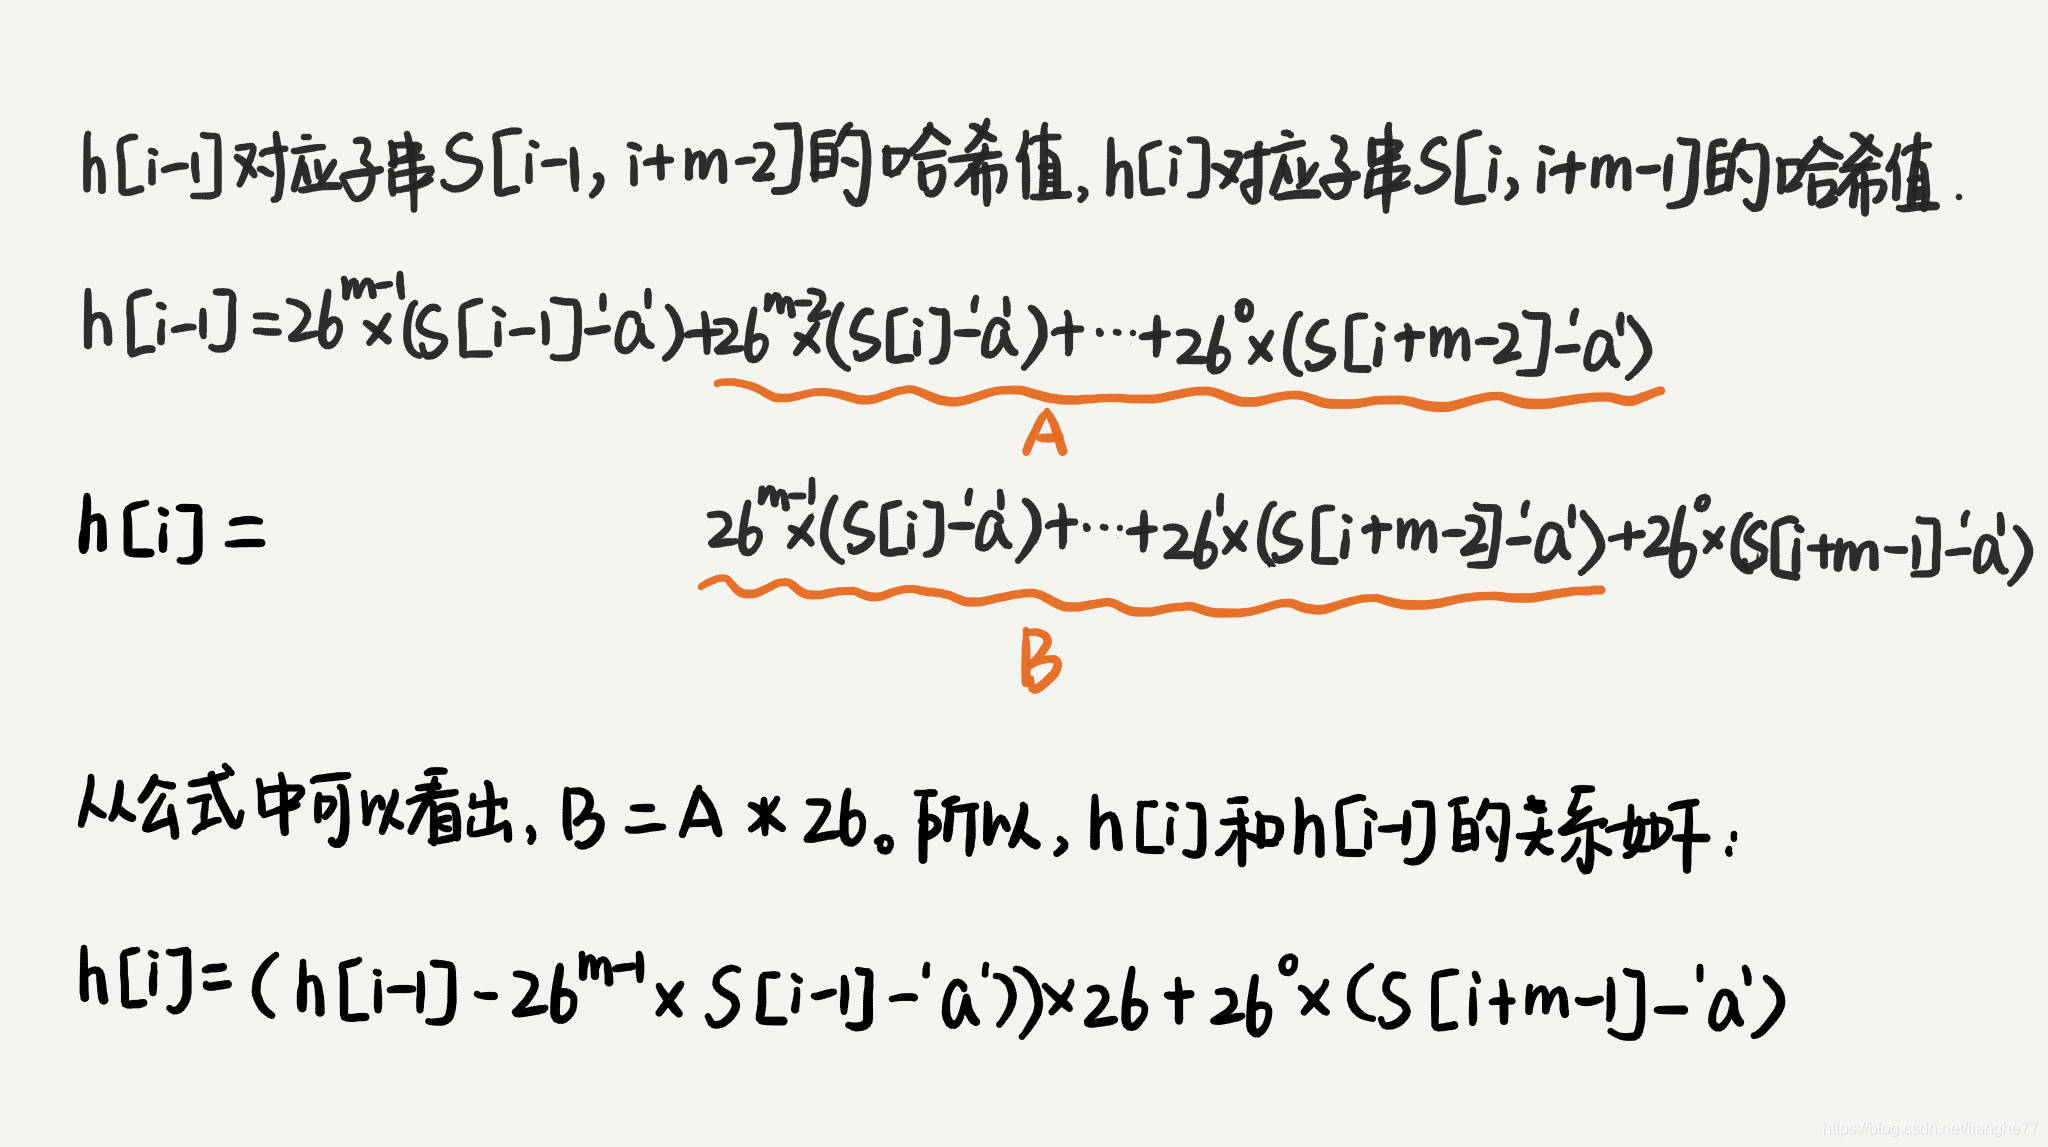 h[i-1]对应子串S[i-1, i+m-2]的哈希值, h[i]对应子串S[i, i+m-1]的哈希值.
h[i-1]=26^{m-1}×(S[i-1]-'a')+26^{m-2}×(S[i]-'a')+···+26^0×(S[i+m-2]-'a')
A
h[i]= 26^{m-1}×(S[i]-'a')+···+26^1×(S[i+m-2]-'a')+26^0×(S[i+m-1]-'a')
B
从公式中可以看出, B=A*26。所以, h[i]和h[i-1]的关系如下:
h[i]=(h[i-1]-26^{m-1}×S[i-1]-'a'))×26+26^0×(S[i+m-1]-'a')
https://blog.csdn.net/lianghe77